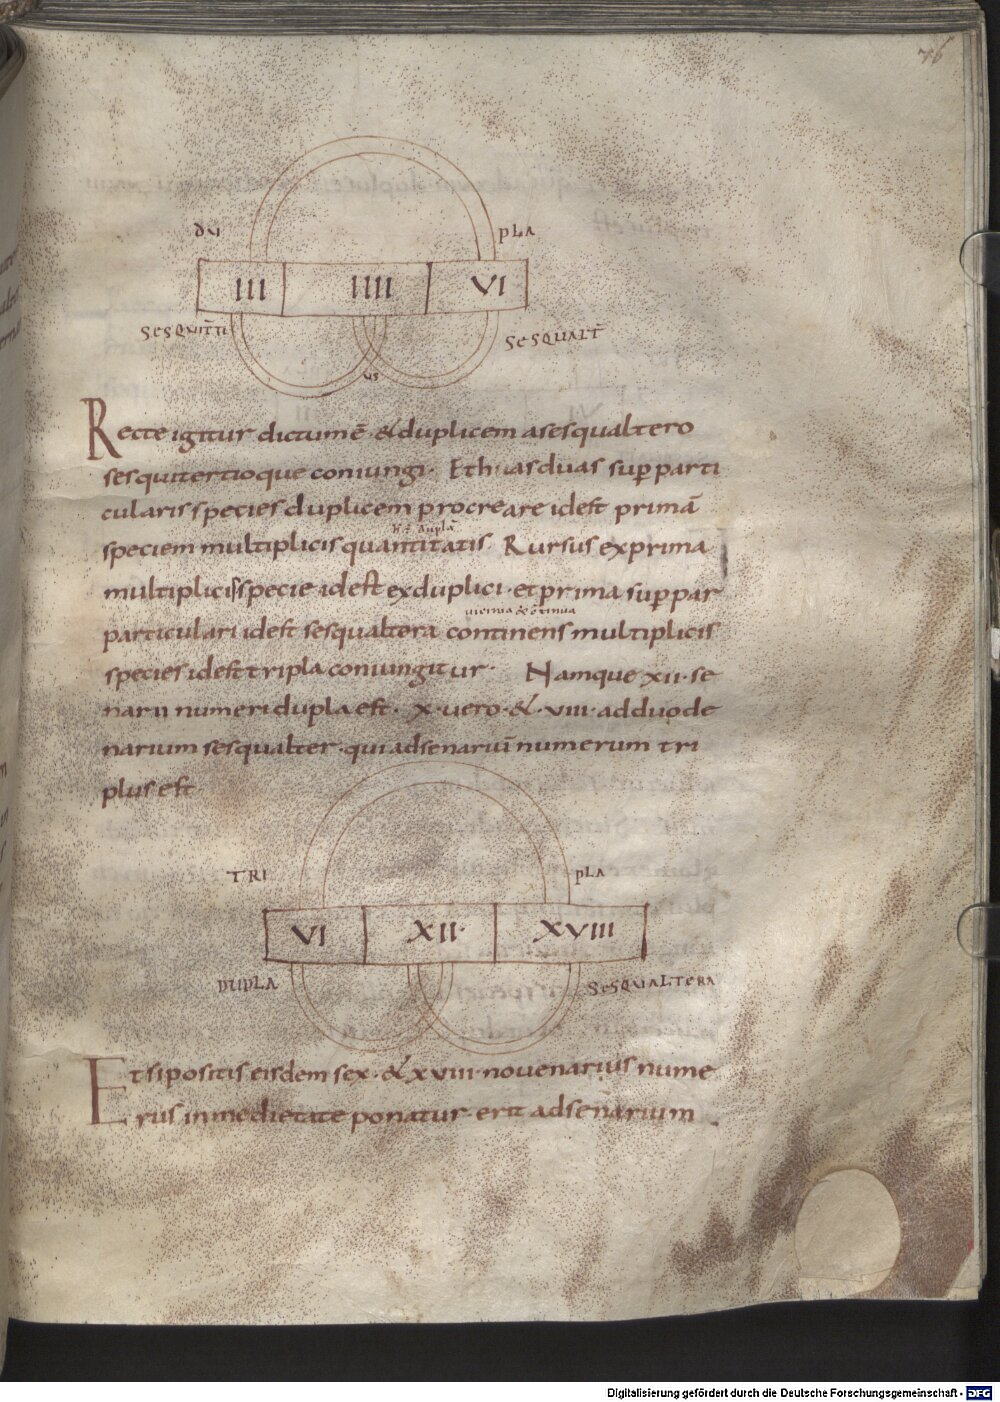 76
DU PLA
III IIII VI
SESQUIT̄TI SESQUALT̄
US
Recte igitur dictum ē & duplicem a sesqualtero
sesquitertioque coniungi. Et has duas sup parti
cularis species duplicem procreare idest primā
h.ē. duplā
speciem multiplicis quantitatis. Rursus ex prima
multiplicis specie idest ex duplici. et prima sup par
vicinia & ctinua
particulari idest sesqualtera continens multiplicis
species idest tripla coniungitur. Namque xii. se
narii numeri dupla est. X. vero. & viii. ad duode
narium sesqualter. qui ad senariū numerum tri
plus est
TRI PLA
VI XII. XVIII
DUPLA SESQUALTERA
Et si positis eisdem sex. & xviii. novenarius nume
rus in medietate ponatur. erit ad senarium
Digitalisierung gefördert durch die Deutsche Forschungsgemeinschaft - DFG